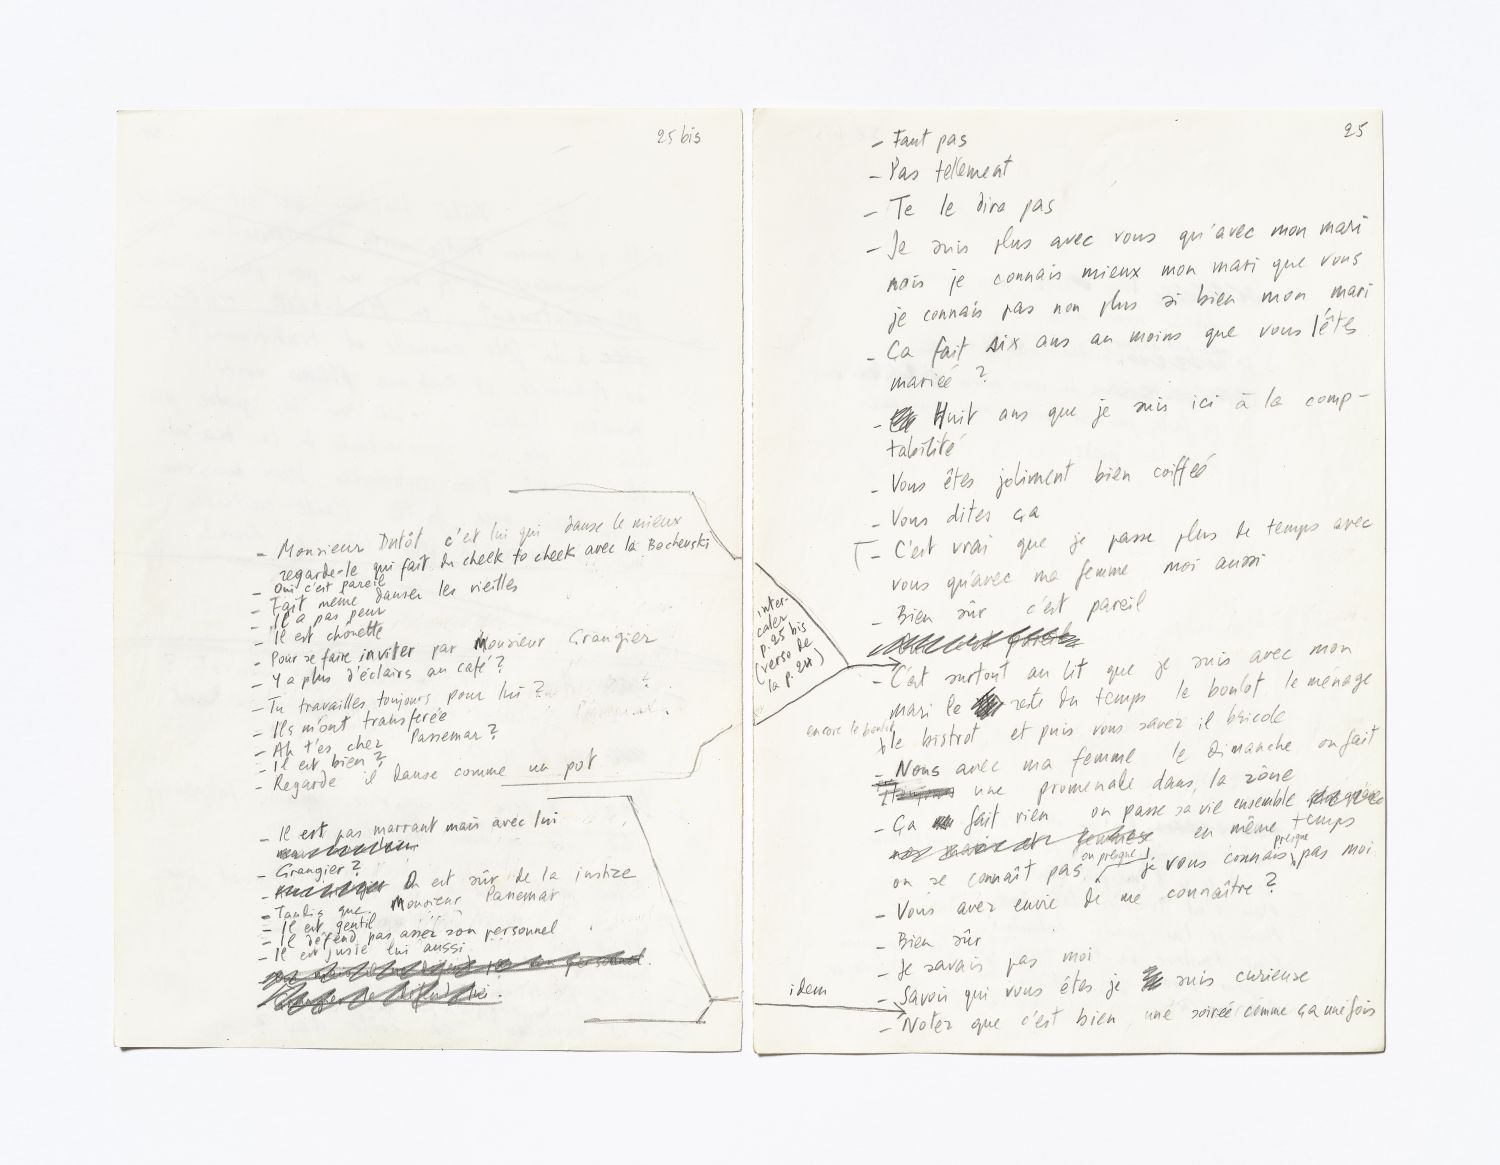 25 bis
– Monsieur Dutôt c'est lui qui danse le mieux
regarde-le qui fait du cheek to cheek avec la Bachevski
– Oui c'est pareil
– Fait même danser les vieilles
– Il a pas peur
– Il est chouette
– Pour se faire inviter par Monsieur Grangier
– Y a plus d'éclairs au café ?
– Tu travailles toujours pour lui ?
– Ils m'ont transférée
– Ah t'es chez Passemar ?
– Il est bien ?
– Regarde il danse comme un pot
– Il est pas marrant mais avec lui
– Grangier ?
– On est sûr de la justice
– Tandis que Monsieur Passemar
– Il est gentil
– Il défend pas assez son personnel
– Il est juste lui aussi
25
– Faut pas
– Pas tellement
– Te le dira pas
– Je suis plus avec vous qu'avec mon mari
mais je connais mieux mon mari que vous
je connais pas non plus si bien mon mari
– Ça fait six ans au moins que vous l'êtes
mariée ?
– Huit ans que je suis ici à la comp-
tabilité
– Vous êtes joliment bien coiffée
– Vous dites ça
– C'est vrai que je passe plus de temps avec
vous qu'avec ma femme moi aussi
– Bien sûr c'est pareil
inter-
caler
p. 25 bis
(verso de
la p. 24)
– C'est surtout au lit que je suis avec mon
mari le reste du temps le boulot le ménage
encore le boulot
le bistrot et puis vous savez il bricole
– Nous avec ma femme le dimanche on fait
une promenade dans la zône
– Ça fait rien on passe sa vie ensemble
en même temps
on se connaît pas ou presque je vous connais presque pas moi
– Vous avez envie de me connaître ?
– Bien sûr
– Je savais pas moi
– Savoir qui vous êtes je suis curieuse
idem
– Notez que c'est bien une soirée comme ça une fois